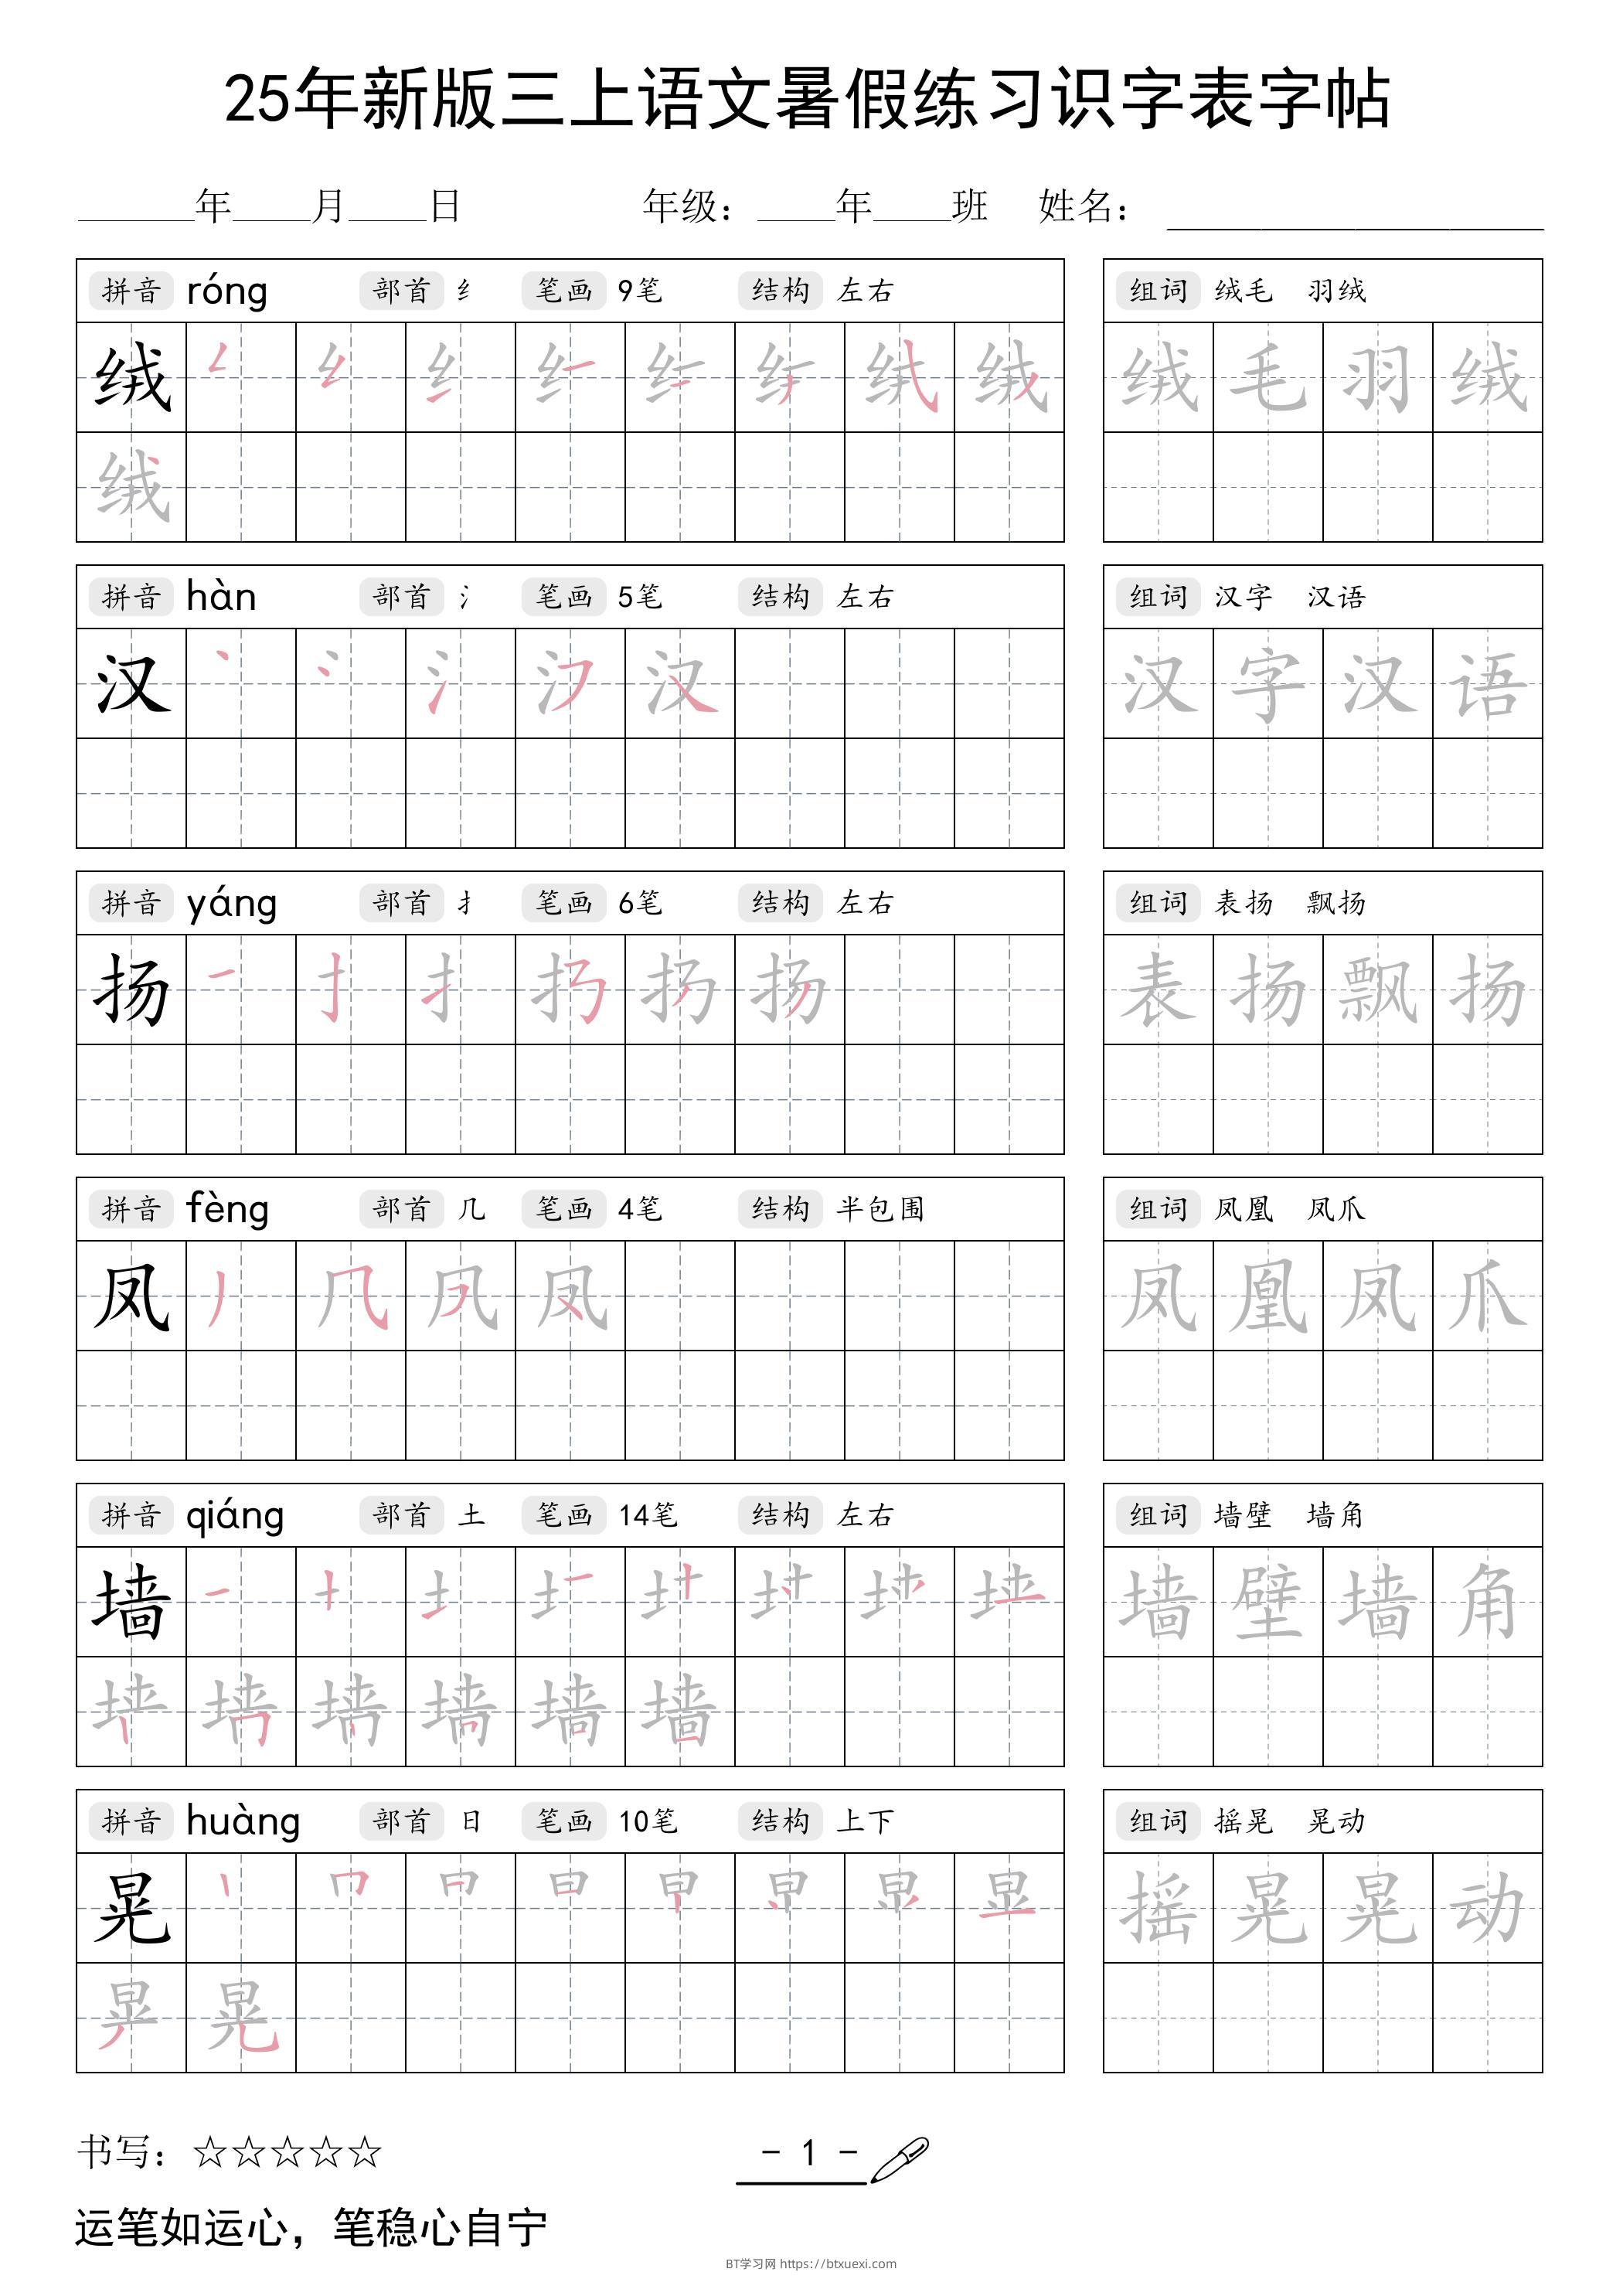 25年新版三上语文暑假练习识字表字帖
______年____月____日 年级：____年____班 姓名：
拼音 róng 部首 纟 笔画 9笔 结构 左右 组词 绒毛 羽绒
绒 绒 毛 羽 绒
绒
拼音 hàn 部首 氵 笔画 5笔 结构 左右 组词 汉字 汉语
汉 汉 字 汉 语
拼音 yáng 部首 扌 笔画 6笔 结构 左右 组词 表扬 飘扬
扬 表 扬 飘 扬
拼音 fèng 部首 几 笔画 4笔 结构 半包围 组词 凤凰 凤爪
凤 凤 凰 凤 爪
拼音 qiáng 部首 土 笔画 14笔 结构 左右 组词 墙壁 墙角
墙 墙 壁 墙 角
墙
拼音 huàng 部首 日 笔画 10笔 结构 上下 组词 摇晃 晃动
晃 摇 晃 晃 动
晃
书写：☆☆☆☆☆ - 1 -
运笔如运心，笔稳心自宁
BT学习网 https://btxuexi.com